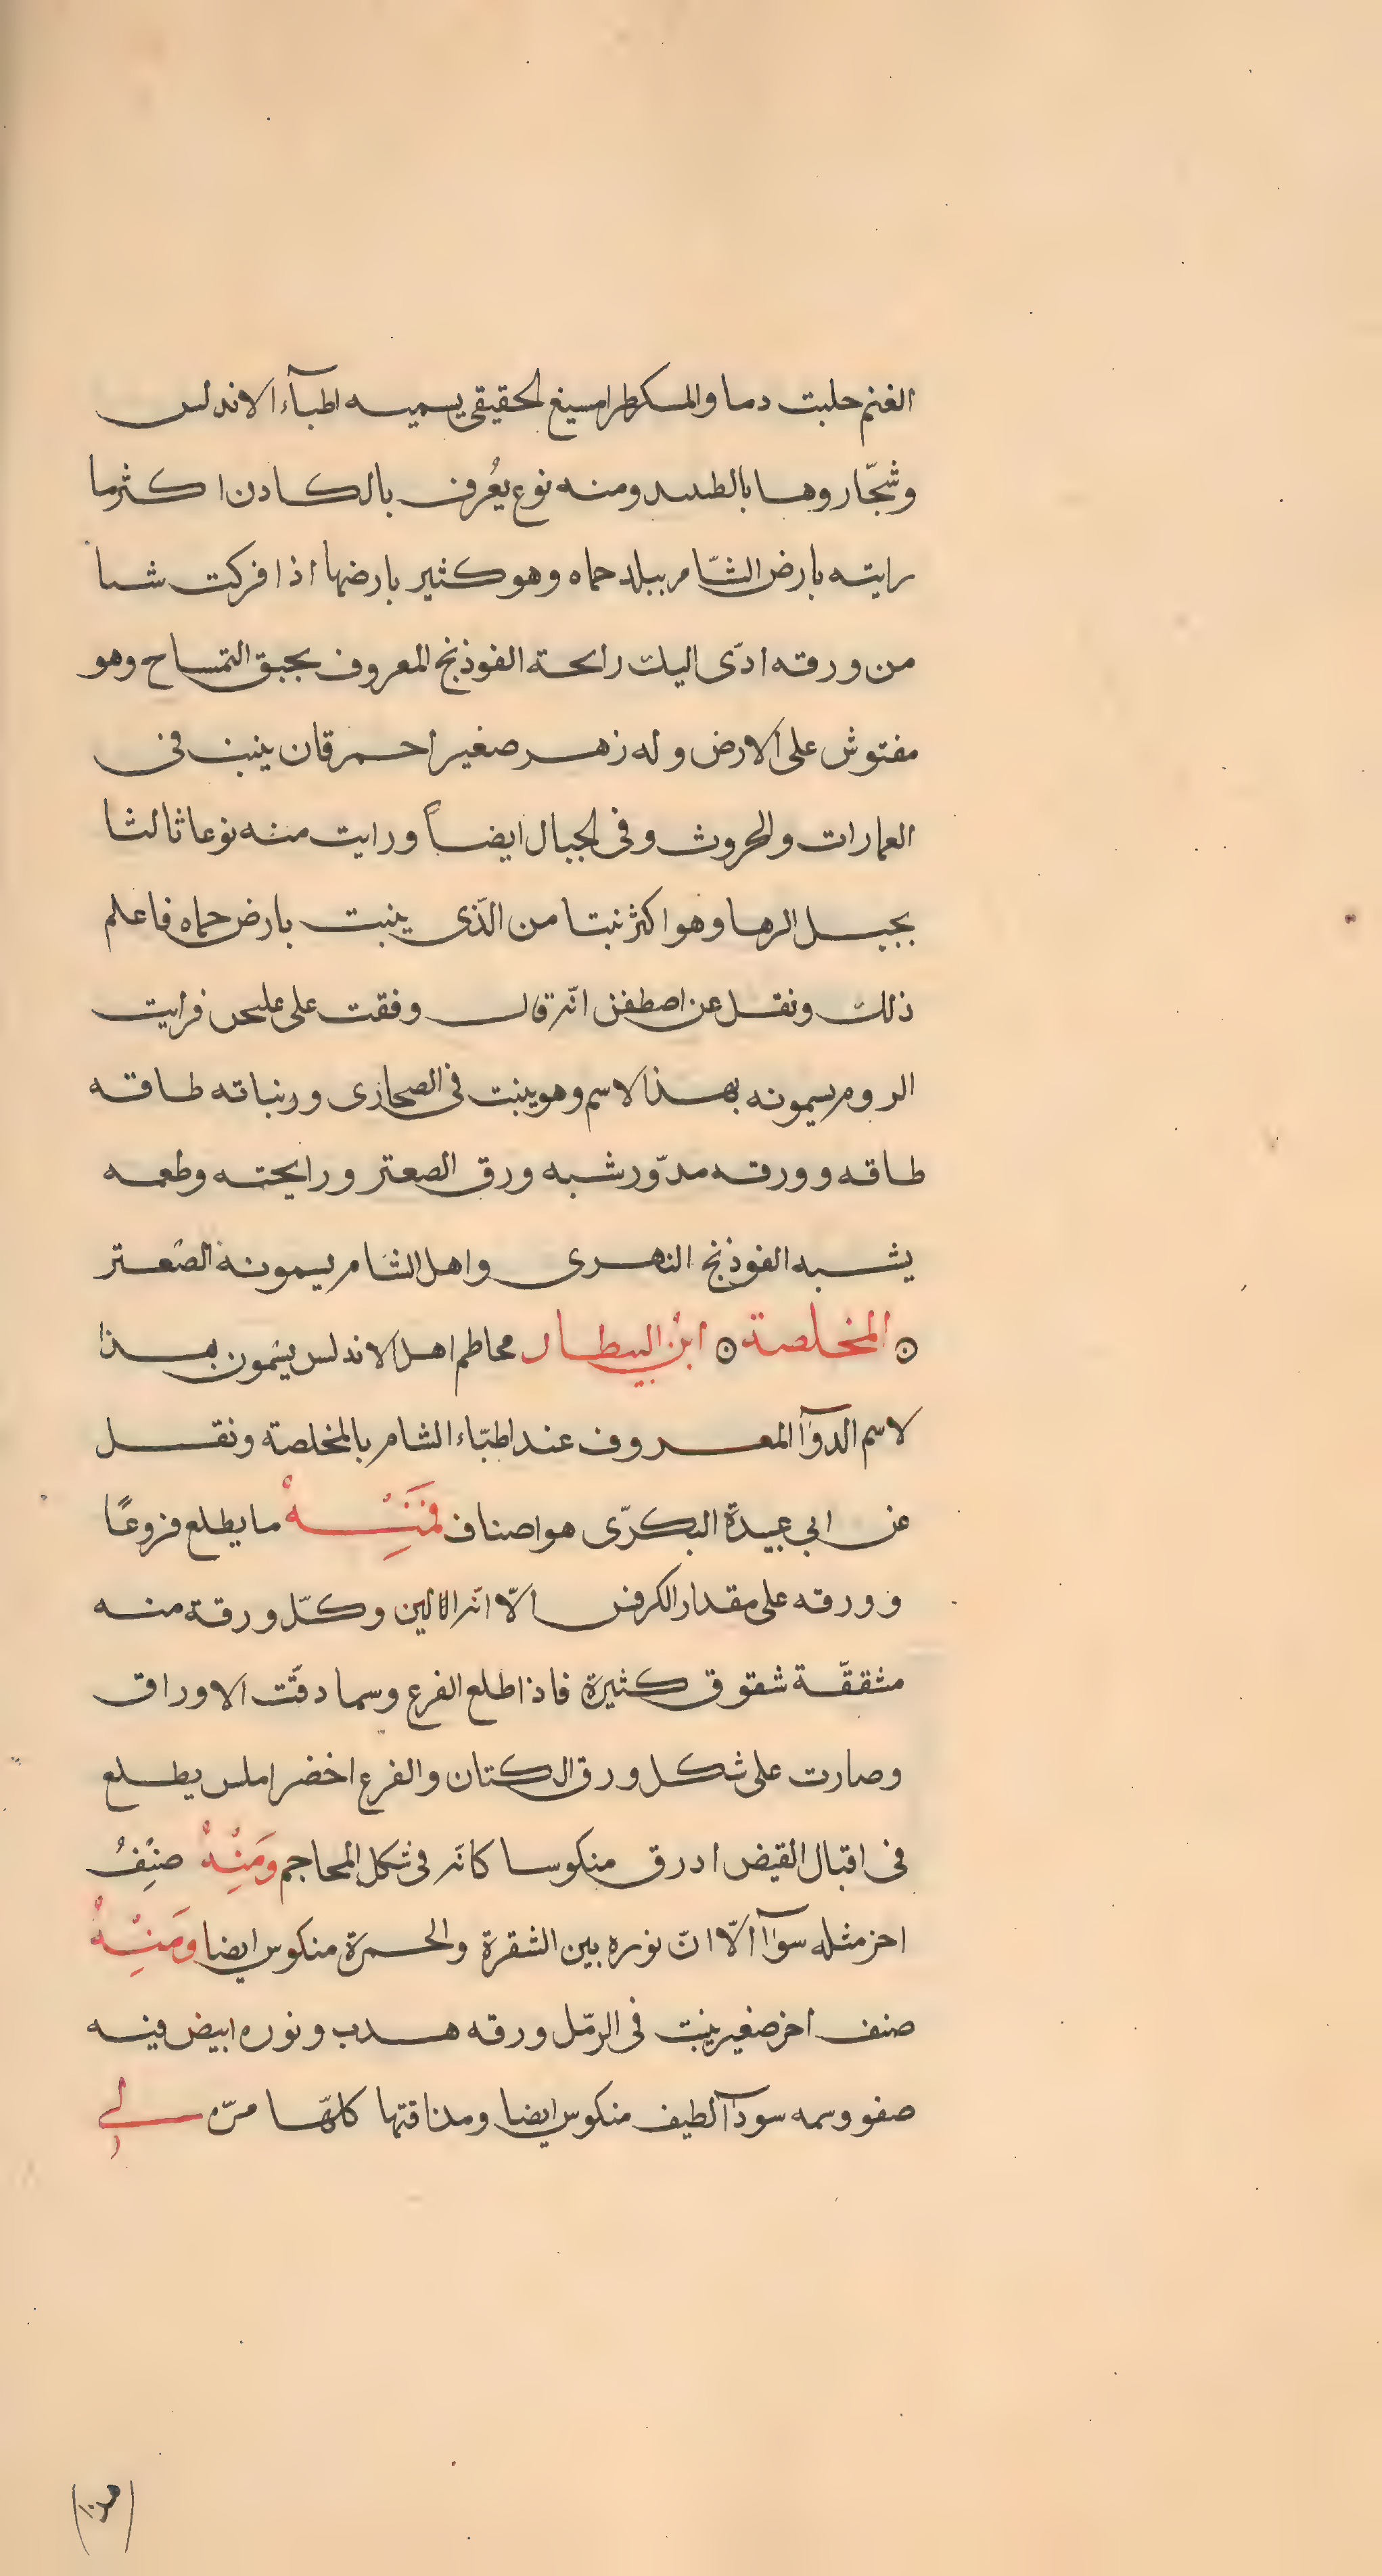 الغنم حلبت دما والمسكطرامسيغ الحقيقى يسميه اطبآء الاندلس
وشجّاروها بالطسد ومنه نوع يعُرف بالكادن اكثر ما
رايته بارض الشّام ببلد حماه وهو كثير بارضها اذا فركت شىا
من ورقه ادّى اليك رايحة الفوذنج المعروف بحبق التمساح وهو
مفتوش على الارض وله زهر صغير احمر قان ينبت فى
العمارات والحروث وفى الجبال ايضاً ورايت منه نوعا ثالثا
بجبل الرها وهو اكثر نبتا من الّذى ينبت بارض حماه فاعلم
ذلك ونقل عن اصطفن انّه قال وفقت على فرايت
الروم يسمونه بهذا الاسم وهو ينبت فى الصحارى ورنباته طاقه
طاقه وورقه مدّور شبه ورق الصعتر ورايحته وطعمه
يشبه الفوذنج النهرى واهل الشام يسمونه الصعتر
⊙ المخلصة ⊙ ابن البيطار محاطم اهل الاندلس يسمون بهذا
لاسم الدوآا المعروف عند اطبّاء الشام بالمخلصة ونقل
عن ابى عبيدة البكرّى هو اصناف فَمَنِهُْ ما يطلع فروعًا
وورقه على مقدار الكرفس الّا انّه الالين وكلّ ورقة منه
مشققّة شقوق كثيرة فاذا طلع الفرع وسما دقّت الاوراق
وصارت على شكل ورق الكتان والفرع اخضر املس يطلع
فى اقبال القيض ادرق منكوسا كانّه فى شكل المحاجم وَمَنِْهُْ صنِفُ
اخر مثله سوآا الّا انّ نوره بين الشقرة والحمرة منكوس ايضا وَمَنِْهُْ
صنف اخر صغير ينبت فى الرمّل ورقه هدب ونوره ابيض فيه
صفو وسمه سودآ لطيف منكوس ايضا ومذاقتها كلهّا مرّه لى